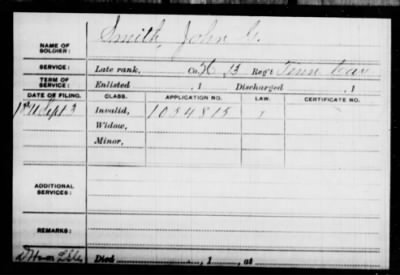 Smith, John G.
NAME OF
SOLDIER:
SERVICE:
Late rank, Co. H, 13 Reg't Tenn Cav
TERM OF
SERVICE:
Enlisted , 1 Discharged , 1
DATE OF FILING. CLASS. APPLICATION NO. LAW. CERTIFICATE NO.
Sept 3 Invalid, 1054815
Widow,
Minor,
ADDITIONAL
SERVICES:
REMARKS:
Died , 1 , at